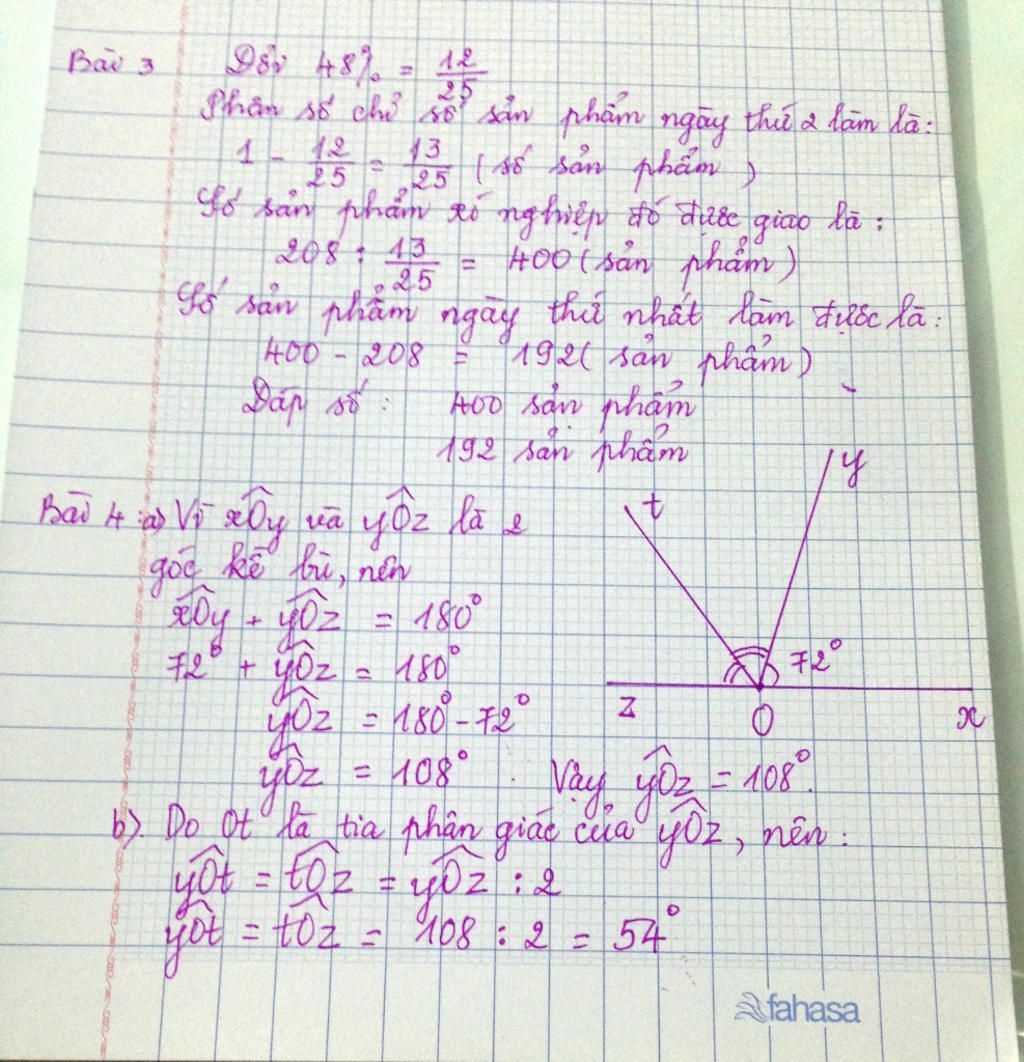 Bài 3 Đổi 48% = 12/25
Phân số chỉ số sản phẩm ngày thứ 2 làm là:
1 - 12/25 = 13/25 (số sản phẩm)
Số sản phẩm xí nghiệp đó được giao là:
208 : 13/25 = 400 (sản phẩm)
Số sản phẩm ngày thứ nhất làm được là:
400 - 208 = 192 (sản phẩm)
Đáp số: 400 sản phẩm
192 sản phẩm
Bài 4 a) Vì xÔy và yÔz là 2
góc kề bù, nên
xÔy + yÔz = 180°
72° + yÔz = 180°
yÔz = 180° - 72°
yÔz = 108°. Vậy yÔz = 108°.
t
y
72°
z O x
b). Do Ot là tia phân giác của yÔz, nên:
yÔt = tÔz = yÔz : 2
yÔt = tÔz = 108 : 2 = 54°
fahasa